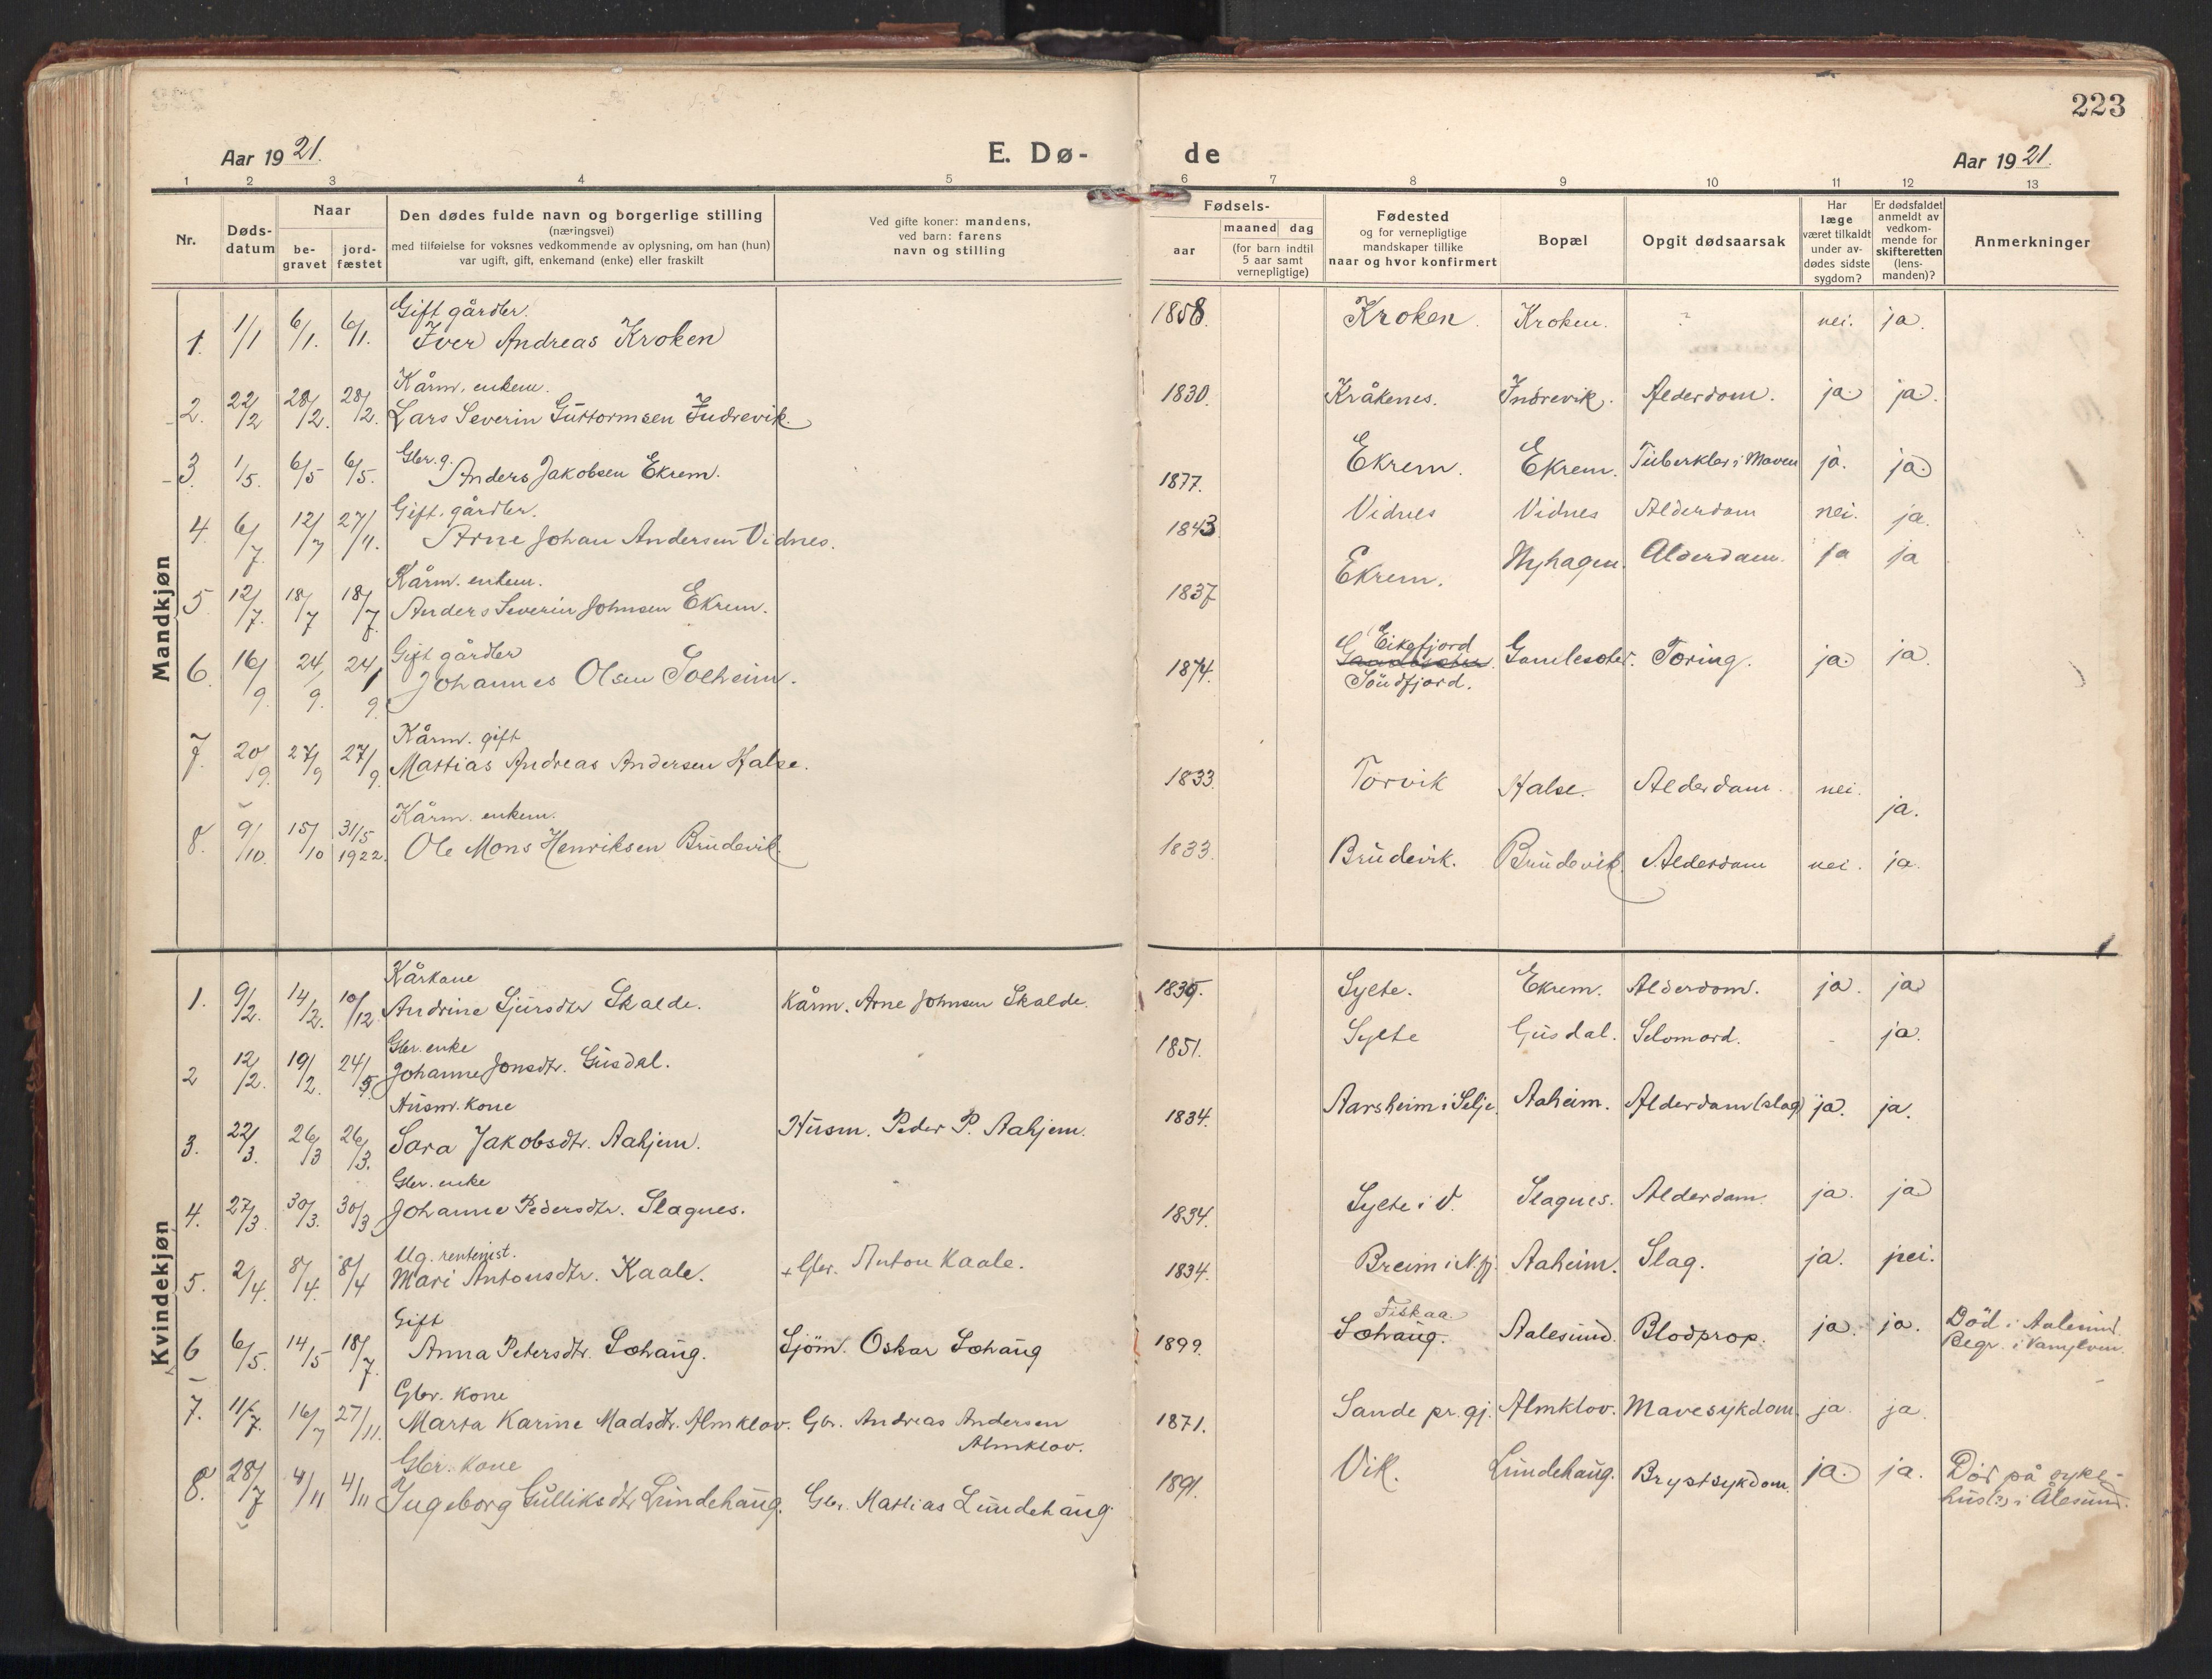 223
Aar 1921.
E. Dø-
de
Aar 1921.
1 2 3 4 5 6 7 8 9 10 11 12 13
Nr.
Døds-
datum
Naar
be-
gravet
jord-
fæstet
Den dødes fulde navn og borgerlige stilling
(næringsvei)
med tilføielse for voksnes vedkommende av oplysning, om han (hun)
var ugift, gift, enkemand (enke) eller fraskilt
Ved gifte koner: mandens,
ved barn: farens
navn og stilling
Fødsels-
aar
maaned dag
(for barn indtil
5 aar samt
vernepligtige)
Fødested
og for vernepligtige
mandskaper tillike
naar og hvor konfirmert
Bopæl
Opgit dødsaarsak
Har
læge
været tilkaldt
under av-
dødes sidste
sygdom?
Er dødsfaldet
anmeldt av
vedkom-
mende for
skifteretten
(lens-
manden)?
Anmerkninger
Mandkjøn
Gift gårdbr.
1. 1/1 6/1. 6/1. Iver Andreas Kroken 1858. Kroken. Kroken. ? nei. ja.
Kårm. enkem.
2. 22/2 28/2. 28/2. Lars Severin Guttormsen Indrevik. 1830. Kråkenes. Indrevik. Alderdom. ja. ja.
Gbr. g.
3. 1/5. 6/5 6/5. Anders Jakobsen Ekrem. 1877. Ekrem. Ekrem. Tuberkler i Maven ja. ja.
Gift. gårdbr.
4. 6/7. 12/7 27/11. Arne Johan Andersen Vidnes. 1843 Vidnes Vidnes Alderdam nei. ja.
Kårm. enkem.
5. 12/7. 18/7 18/7. Anders Severin Johnsen Ekrem. 1837 Ekrem. Nyhagen. Alderdam. ja ja
Gift gårdbr
6. 16/9. 24/9. 24/9. Johannes Olsen Solheim. 1874. Eikefjord Søndfjord. Gamlesæter. Tæring. ja. ja.
Kårm. gift
7. 20/9. 27/9 27/9. Mattias Andreas Andersen Halse. 1833. Torvik Halse. Alderdam. nei. ja.
Kårm. enkem.
8. 9/10. 15/10 31/5 1922. Ole Mons Henriksen Brudevik. 1833. Brudevik. Brudevik Alderdam nei. ja.
Kvindekjøn
Kårkone
1. 9/2. 14/2. 10/12. Andrine Sjursdtr Skalde. Kårm. Arne Johnsen Skalde. Sylte. Ekrem. Alderdom. ja. ja
Gbr. enke
2 12/2. 19/2. 24/5. Johanne Jonsdtr. Gusdal. 1851. Sylte Gusdal. Selvmord. - ja.
Husm. kone
3. 22/3. 26/3 26/3. Sara Jakobsdtr. Aahjem. Husm. Peder P. Aahjem. 1834. Aarsheim i Selje. Aaheim. Alderdam (slag) ja. ja.
Gbr. enke
4. 27/3. 30/3. 30/3 Johanne Pedersdtr. Slagnes. 1834. Sylte i V. Slagnes. Alderdam. ja. ja
Ug. rentenist.
5. 2/4. 8/4. 8/4 Mari Antonsdtr. Kaale. + Gbr. Anton Kaale. 1834. Breim i N.fj. Aaheim. Slag. ja. nei.
Gift
6 6/5. 14/5 18/7. Anna Petersdtr. Løhaug. Sjøm. Oskar Løhaug 1899. Fiskaa Løhaug. Aalesund. Blodprop. ja. ja. Död i Aalesund.
Begr. i Vanylven.
Gbr. kone
7. 11/7. 16/7 27/11. Marta Karine Madsdtr. Almklov. Gbr. Andreas Andersen
Almklov. 1871. Sande pr. gj. Almklov. Mavesykdom. ja. ja.
Gbr. kone
8. 28/7 4/11 4/11 Ingeborg Gulliksdtr Lundehaug. Gbr. Mattias Lundehaug 1891. Vik. Lundehaug. Brystsykdom. ja. ja. Död på syke-
hus(?) i Ålesund.